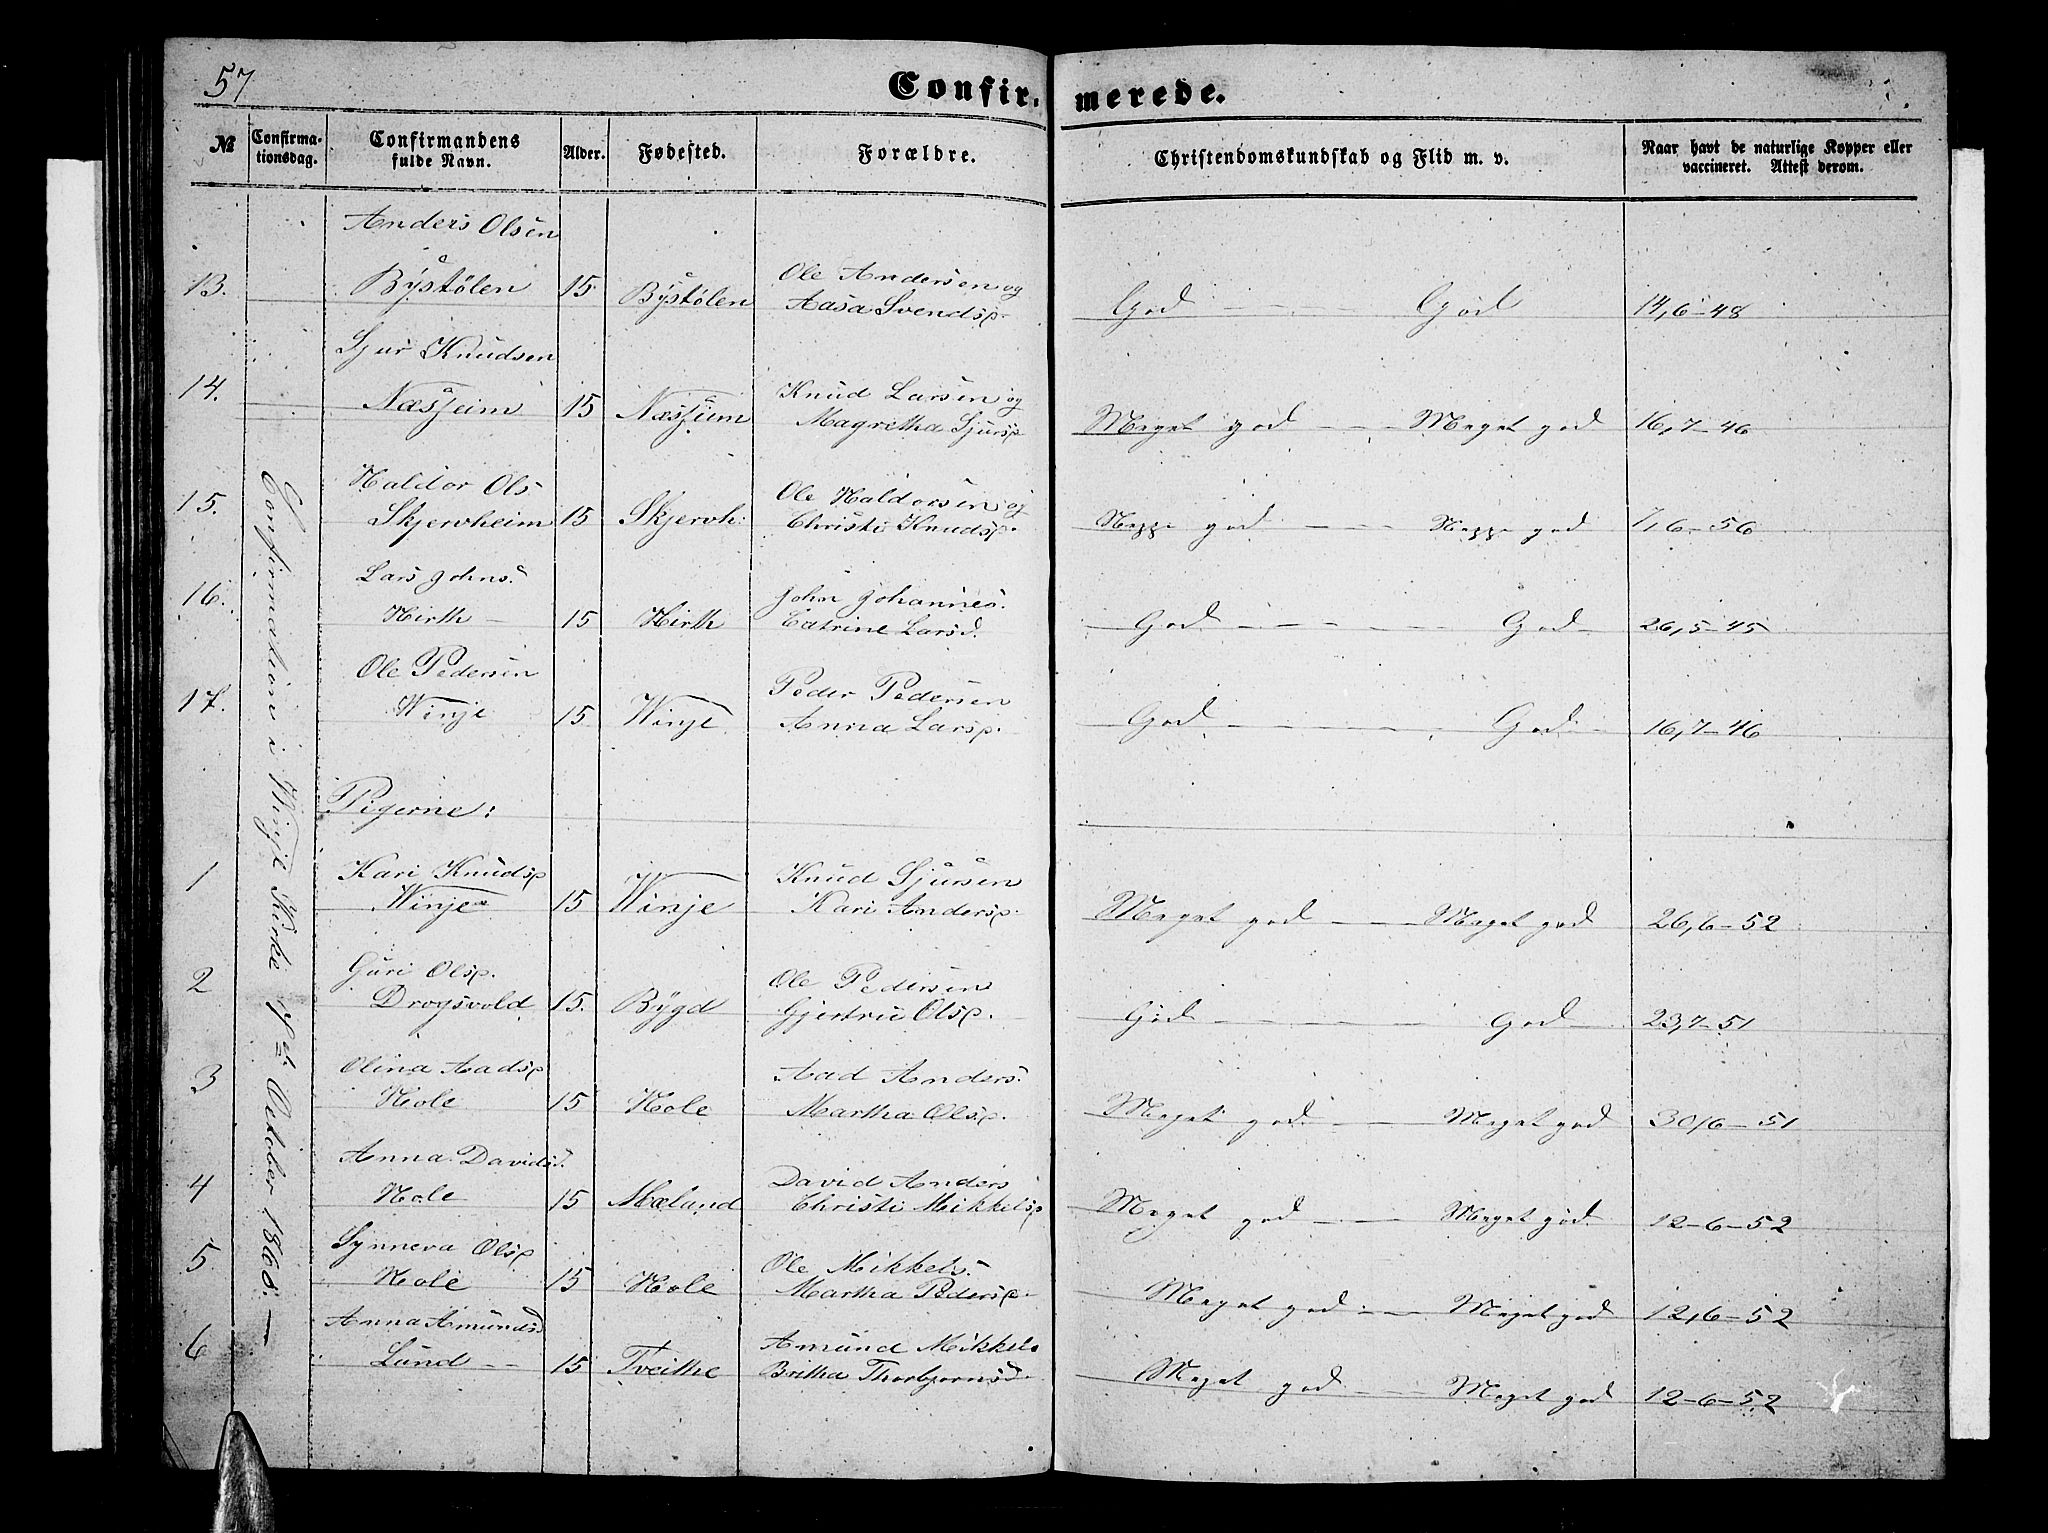 57
Confir. merede.
№ Confirma-tionsdag. Confirmandens fulde Navn. Alder. Fødested. Forældre. Christendomskundskab og Flid m. v. Naar havt de naturlige Kopper eller vaccineret. Attest derom.
Confirmation i Winje Kirke October 186
Anders Olsen
13. Bystølen 15 Bystølen Ole Andersen og
Aasa Svendsp. God - - - God 14,6-48
Sjur Knudsen
14. Næsheim 15 Næsheim Knud Larsen og
Magretha Sjursp Meget god - - - Meget god 16,7-46
Haldor Ols
15. Skjervheim 15 Skjervh: Ole Haldorsen og
Christi Knudsp. god - - - god 7,6-56
Lars Johns.
16. Hirth - 15 Hirth John Johannes.
Catrine Larsd. God - - - God 26,5-45
Ole Pedersen
17. Winje 15 Winje Peder Pedersen
Anna Larsp. God - - - God 16,7-46
Pigerne:
1 Kari Knudsp
Winje 15 Winje Knud Sjursen
Kari Andersp. Meget god - - - Meget god 26,6-52
2 Guri Olsp.
Drogsvold 15. Bygd Ole Pedersen
Gjertru Olsp. God - - - God 23,7-51
3 Olina Aadsp
Hole 15 Hole Aad Anders.
Martha Olsp. Meget god - - - Meget god 30,6-51
4 Anna Davidsd.
Hole 15 Mæland David Anders
Christi Mikkelsp Meget god - - - Meget god. 12-6-52
5 Synneva Olsp
Hole 15 Hole Ole Mikkels.
Martha Pedersp. Meget god - - Meget god 12,6-52
6 Anna Amundsd
Lund - - 15 Tveithe Amund Mikkels
Britha Thorbjornsd. Meget god - - Meget god 12-6-52